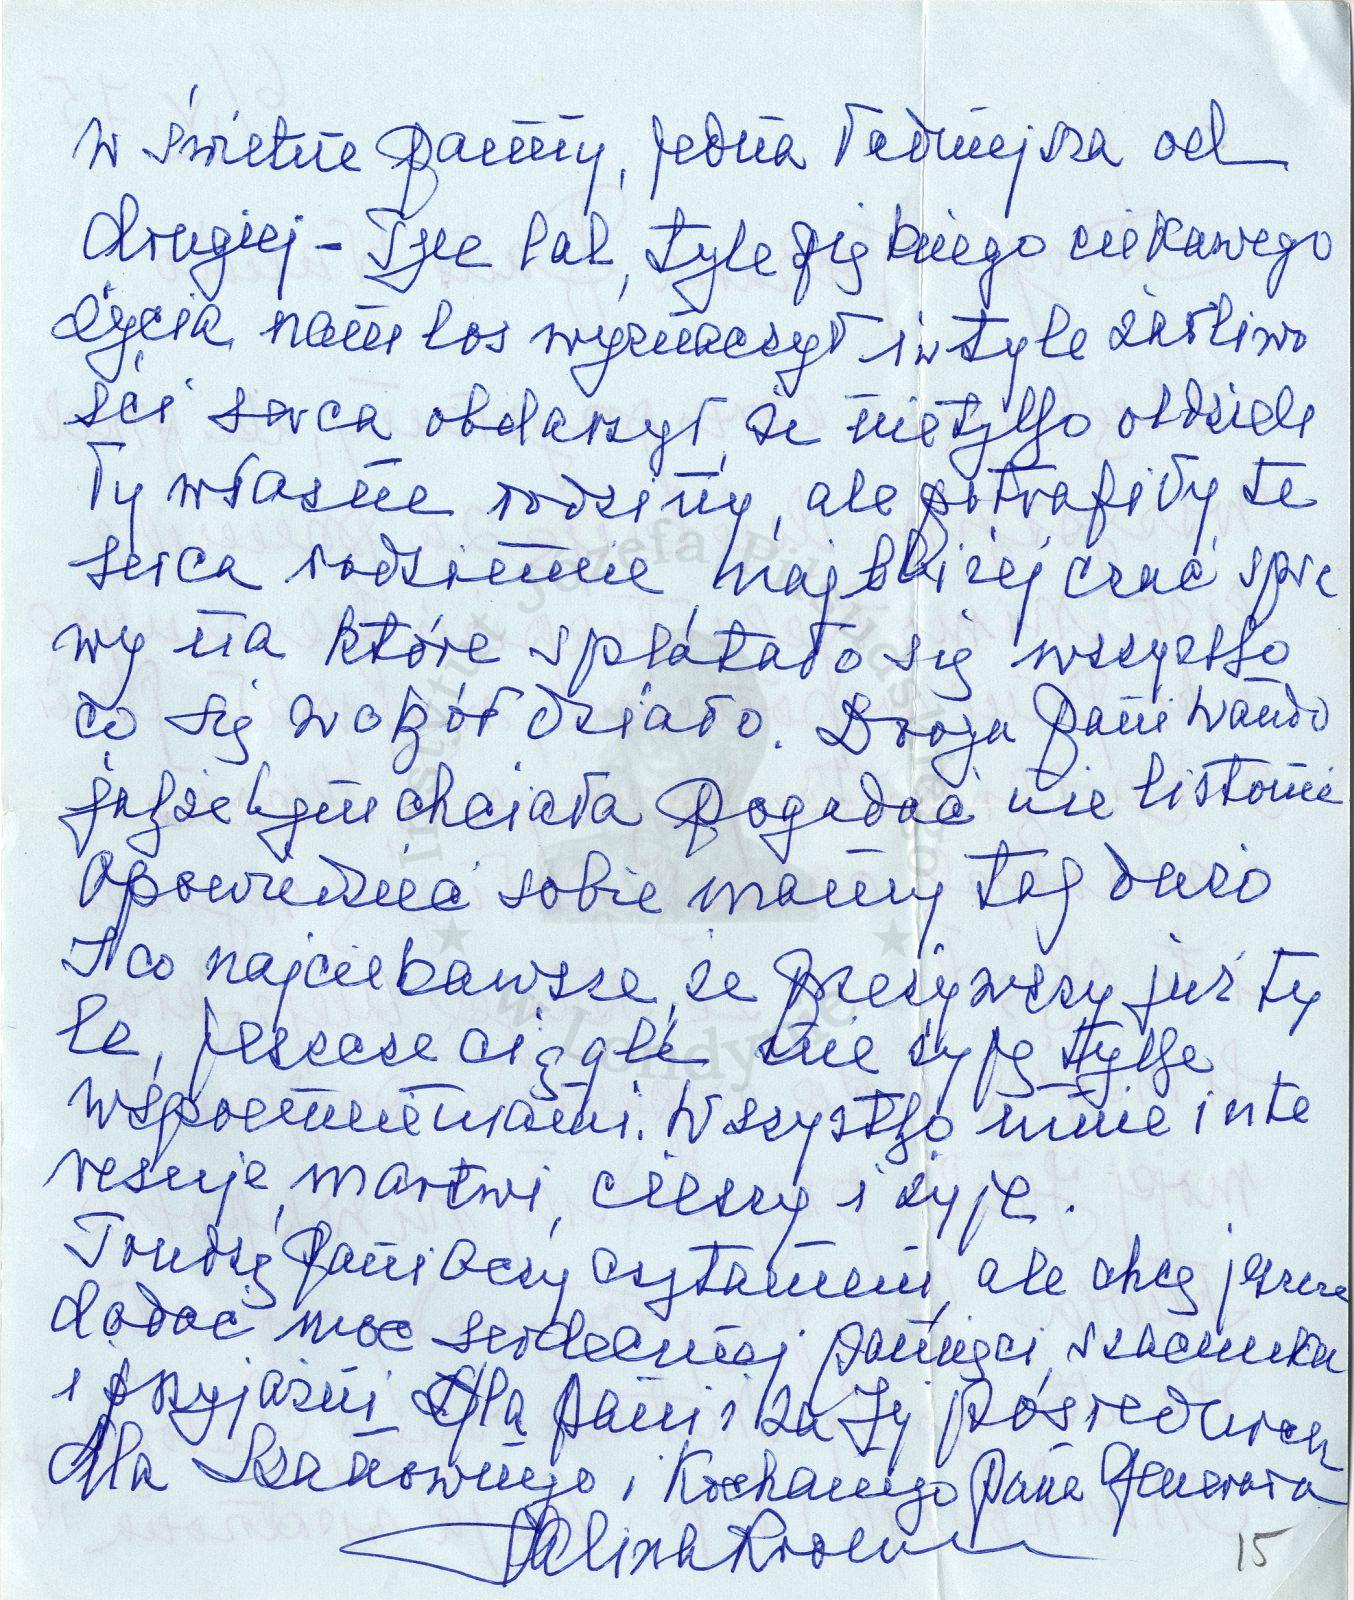 w świetne Panny, jedna ładniejsza od
drugiej – Tyle lat, tyle pięknego ciekawego
życia nam los wyznaczył i w tyle żarliwo
ści serca obdarzył, że nietylko obdzieli
ły własne rodziny, ale potrafiły te
serca rodzinnie najbliżej czuć spra
wy na które splatało się wszystko
co się wokół działo. Droga Pani Wando
jakże bym chciała pogadać nie listownie
Opowiedzieć sobie mamy tak dużo
I co najciekawsze, że przeżywszy już ty
le, jeszcze ciągle nie żyję tylko
wspomnieniami. Wszystko mnie inte
resuje, martwi, cieszy i żyję.
Trudzę Pani oczy czytaniem, ale chcę jeszcze
dodać moc serdecznej pamięci, szacunku
i przyjaźni dla Pani i za Jej pośrednictwem
dla Szanownego i Kochanego Pana Generała
15
Instytut Józefa Piłsudskiego
w Londynie